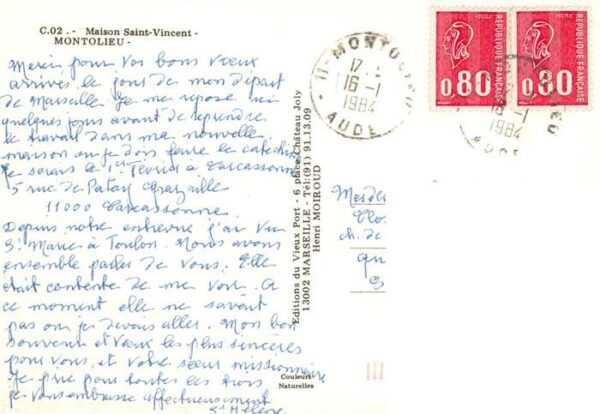 C.02 .- Maison Saint-Vincent -
MONTOLIEU -
Merci pour vos bons vœux
arrivés le jour de mon départ
de Marseille. Je me repose ici
quelques jours avant de reprendre
le travail dans ma nouvelle
maison où je dois faire la catéchèse
Je serais le 1er Février à Carcassonne
5 rue de Patay
11000 Carcassonne
Depuis notre entrevue j'ai vu
S. Marie à Toulon. Nous avons
ensemble parler de vous. Elle
était contente de me voir. A
ce moment elle ne savait
pas où je devais aller. Mon bon
souvenir et vœux les plus sincères
pour vous et votre sœur missionnaire
Je prie pour toutes les trois
je vous embrasse affectueusement
Sr Hélène
Editions du Vieux Port - 6 place Château Joly
13002 MARSEILLE - Tél:(91) 91.13.09
Henri MOIROUD
Couleurs
Naturelles
11 - MONTOLIEU
17
16-1
1984
AUDE
POSTES
RÉPUBLIQUE FRANÇAISE
0,80
POSTES
RÉPUBLIQUE FRANÇAISE
0,80
1984
AUDE
ch. de
qu